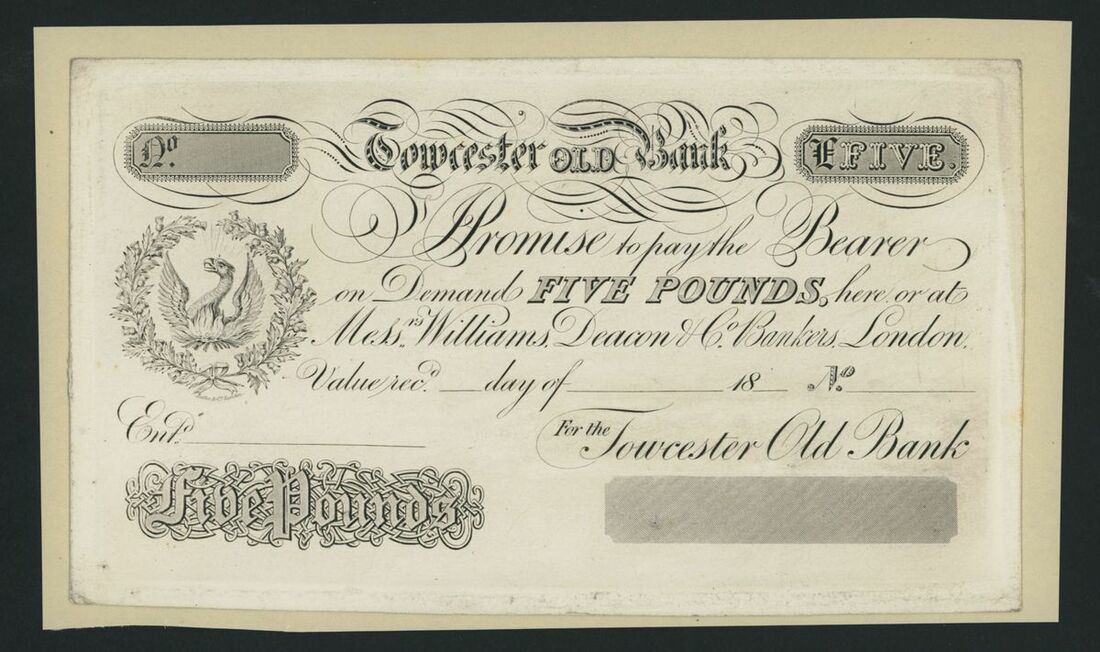 No.
Towcester OLD Bank
£FIVE.
I Promise to pay the Bearer
on Demand FIVE POUNDS, here, or at
Messrs. Williams, Deacon & Co. Bankers, London.
Value recd. day of 18 No.
Entd.
For the Towcester Old Bank
Five Pounds